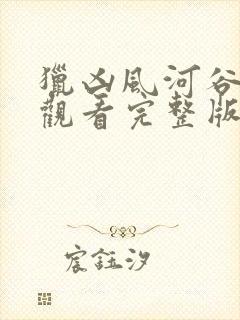 獵凶風河谷
觀看完整版
宸鈺汐